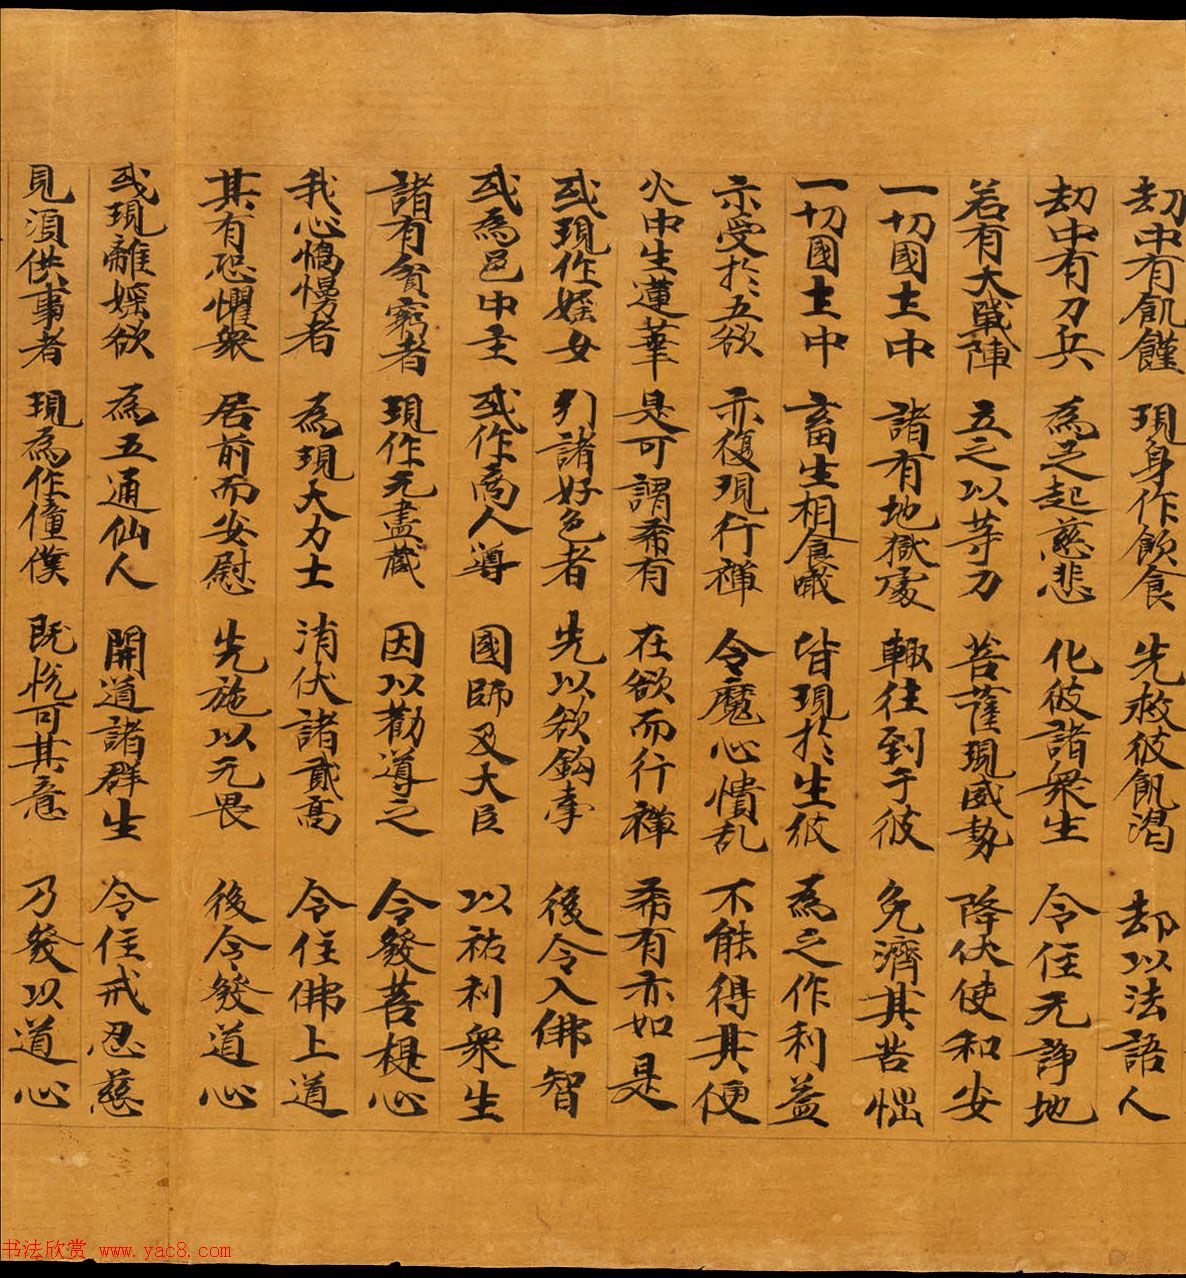 劫中有飢饉 現身作飲食 先救彼飢渴 却以法語人
劫中有刀兵 為之起慈悲 化彼諸衆生 令住无諍地
若有大戰陣 立之以等力 菩薩現威勢 降伏使和安
一切國土中 諸有地獄處 輙往到于彼 免濟其苦惱
一切國土中 畜生相食噉 皆現於生彼 為之作利益
示受於五欲 亦復現行禪 令魔心憒乱 不能得其便
火中生蓮華 是可謂希有 在欲而行禪 希有亦如是
或現作婬女 引諸好色者 先以欲鈎牽 後令入佛智
或為邑中主 或作商人導 國師及大臣 以祐利衆生
諸有貧窮者 現作无盡藏 因以勸導之 令發菩提心
我心憍慢者 為現大力士 消伏諸貢高 令住佛上道
其有恐懼衆 居前而安慰 先施以无畏 後令發道心
或現離婬欲 為五通仙人 開道諸群生 令住戒忍慈
見須供事者 現為作僮僕 既悅可其意 乃發以道心
书法欣赏 www.yac8.com